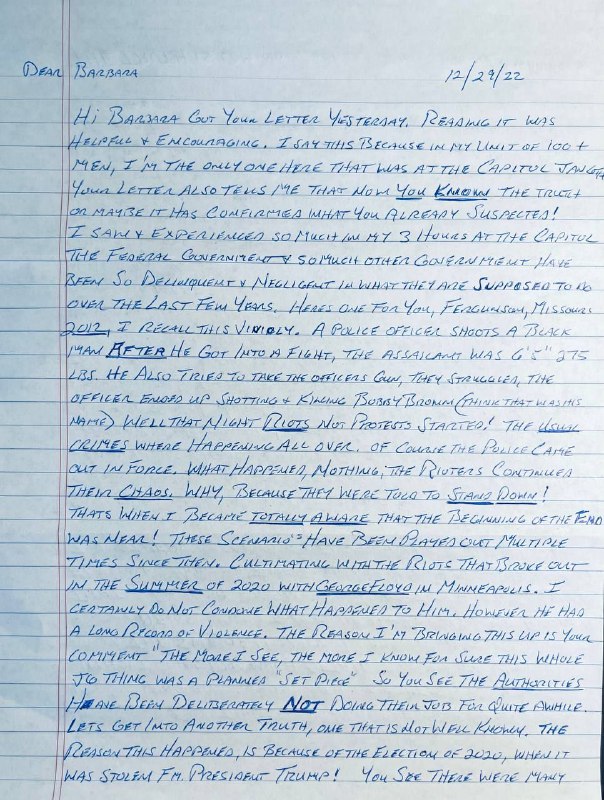 DEAR BARBARA 12/29/22
HI BARBARA GOT YOUR LETTER YESTERDAY. READING IT WAS
HELPFUL & ENCOURAGING. I SAY THIS BECAUSE IN MY UNIT OF 100 +
MEN, I'M THE ONLY ONE HERE THAT WAS AT THE CAPITOL JAN 6TH
YOUR LETTER ALSO TELLS ME THAT NOW YOU KNOW THE TRUTH
OR MAYBE IT HAS CONFIRMED WHAT YOU ALREADY SUSPECTED!
I SAW & EXPERIENCED SO MUCH IN MY 3 HOURS AT THE CAPITOL
THE FEDERAL GOVERNMENT & SO MUCH OTHER GOVERNMENT HAVE
BEEN SO DELINQUENT & NEGLIGENT IN WHAT THEY ARE SUPPOSED TO DO
OVER THE LAST FEW YEARS. HERES ONE FOR YOU, FERGUNSON, MISSOURI
2012, I RECALL THIS VIVIDLY. A POLICE OFFICER SHOOTS A BLACK
MAN AFTER HE GOT INTO A FIGHT, THE ASSAILANT WAS 6'5" 275
LBS. HE ALSO TRIED TO TAKE THE OFFICERS GUN, THEY STRUGGLED, THE
OFFICER ENDED UP SHOTTING & KILLING BOBBY BROWN (THINK THAT WAS HIS
NAME) WELL THAT NIGHT RIOTS NOT PROTESTS STARTED! THE USUAL
CRIMES WHERE HAPPENING ALL OVER. OF COURSE THE POLICE CAME
OUT IN FORCE. WHAT HAPPENED, NOTHING, THE RIOTERS CONTINUED
THEIR CHAOS. WHY, BECAUSE THEY WERE TOLD TO STAND DOWN!
THATS WHEN I BECAME TOTALLY AWARE THAT THE BEGINNING OF THE END
WAS NEAR! THESE SCENARIO'S HAVE BEEN PLAYED OUT MULTIPLE
TIMES SINCE THEN. CULTIMATING WITH THE RIOTS THAT BROKE OUT
IN THE SUMMER OF 2020 WITH GEORGE FLOYD IN MINNEAPOLIS. I
CERTAINLY DO NOT CONDONE WHAT HAPPENED TO HIM. HOWEVER HE HAD
A LONG RECORD OF VIOLENCE. THE REASON I'M BRINGING THIS UP IS YOUR
COMMENT "THE MORE I SEE, THE MORE I KNOW FOR SURE THIS WHOLE
J6 THING WAS A PLANNED "SET PIECE" SO YOU SEE THE AUTHORITIES
HAVE BEEN DELIBERATELY NOT DOING THEIR JOB FOR QUITE AWHILE.
LETS GET INTO ANOTHER TRUTH, ONE THAT IS NOT WELL KNOWN. THE
REASON THIS HAPPENED, IS BECAUSE OF THE ELECTION OF 2020, WHEN IT
WAS STOLEN FM. PRESIDENT TRUMP! YOU SEE THERE WERE MANY